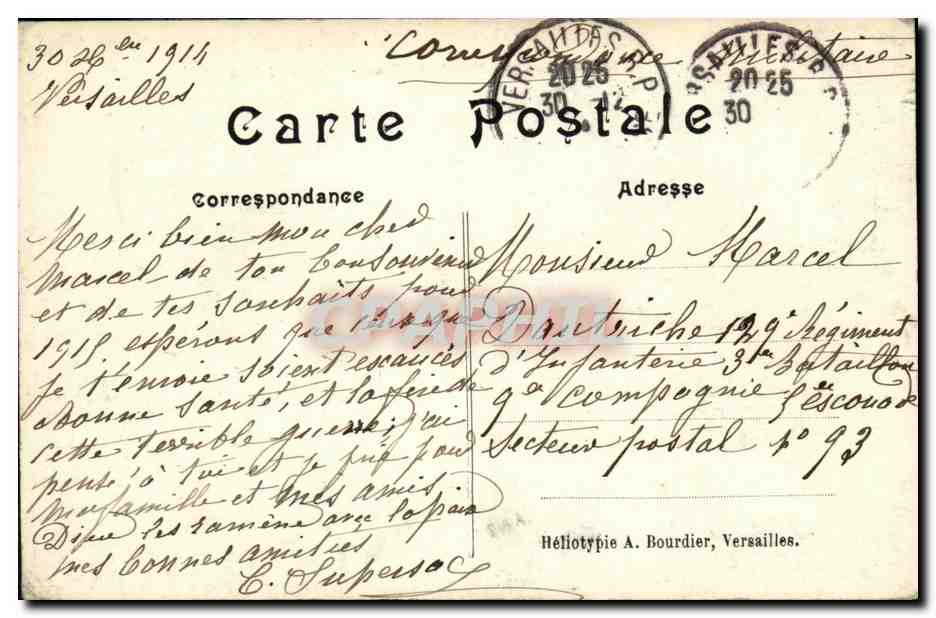 30 Xbre 1914
Versailles
Correspondance militaire
VERSAILLES R.P
20 25
30 -12
VERSAILLES R.P
20 25
30
Carte Postale
Correspondance
Adresse
Merci bien mon cher
Marcel de ton bon souvenir
et de tes souhaits pour
1915. espérons que ceux que
je t'envoie soient exaucés
Bonne santé, et la fin de
cette terrible guerre; j'ai
pensé à toi et je prie pour
ma famille et mes amis.
Dieu les ramène avec la paix
mes bonnes amitiés
C. Supersac
Monsieur Marcel
Dautriche 129e Régiment
d'Infanterie 3me Bataillon
9e compagnie escouade
Secteur postal No 93
CPAPHIL
Héliotypie A. Bourdier, Versailles.